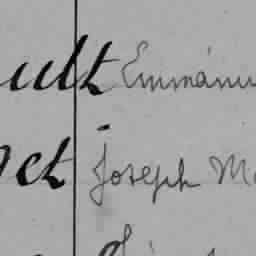 ult Emmanu
et Joseph Ma